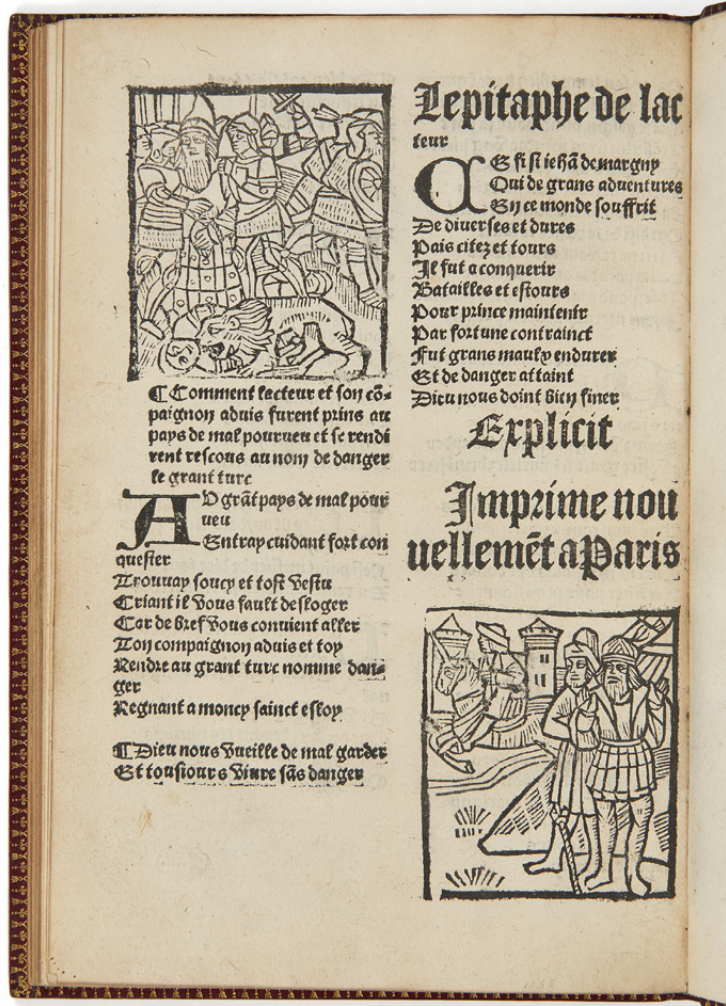 ¶ Comment lacteur et son cō-
paignon aduis furent prins au
pays de mal pourueu et se rendi
rent rescous au nom de danger
le grant turc
AV grāt pays de mal pour
ueu
Entray cuidant fort con
quester
Trouuay soucy et tost vestu
Criant il vous fault desloger
Car de bref vous conuient aller
Ton compaignon aduis et toy
Rendre au grant turc nomme dan-
ger
Regnant a moncy sainct esloy
¶ Dieu nous vueille de mal garder
Et tousiours viure sās danger
Lepitaphe de lac
teur
Cy gist iehā de margny
Qui de grans aduentures
En ce monde souffrit
De diuerses et dures
Pais citez et tours
Il fut a conquerir
Batailles et estours
Pour prince maintenir
Par fortune contrainct
Fut grans maulx endurer
Et de danger attaint
Dieu nous doint bien finer
Explicit
Imprime nou
uellemēt a Paris